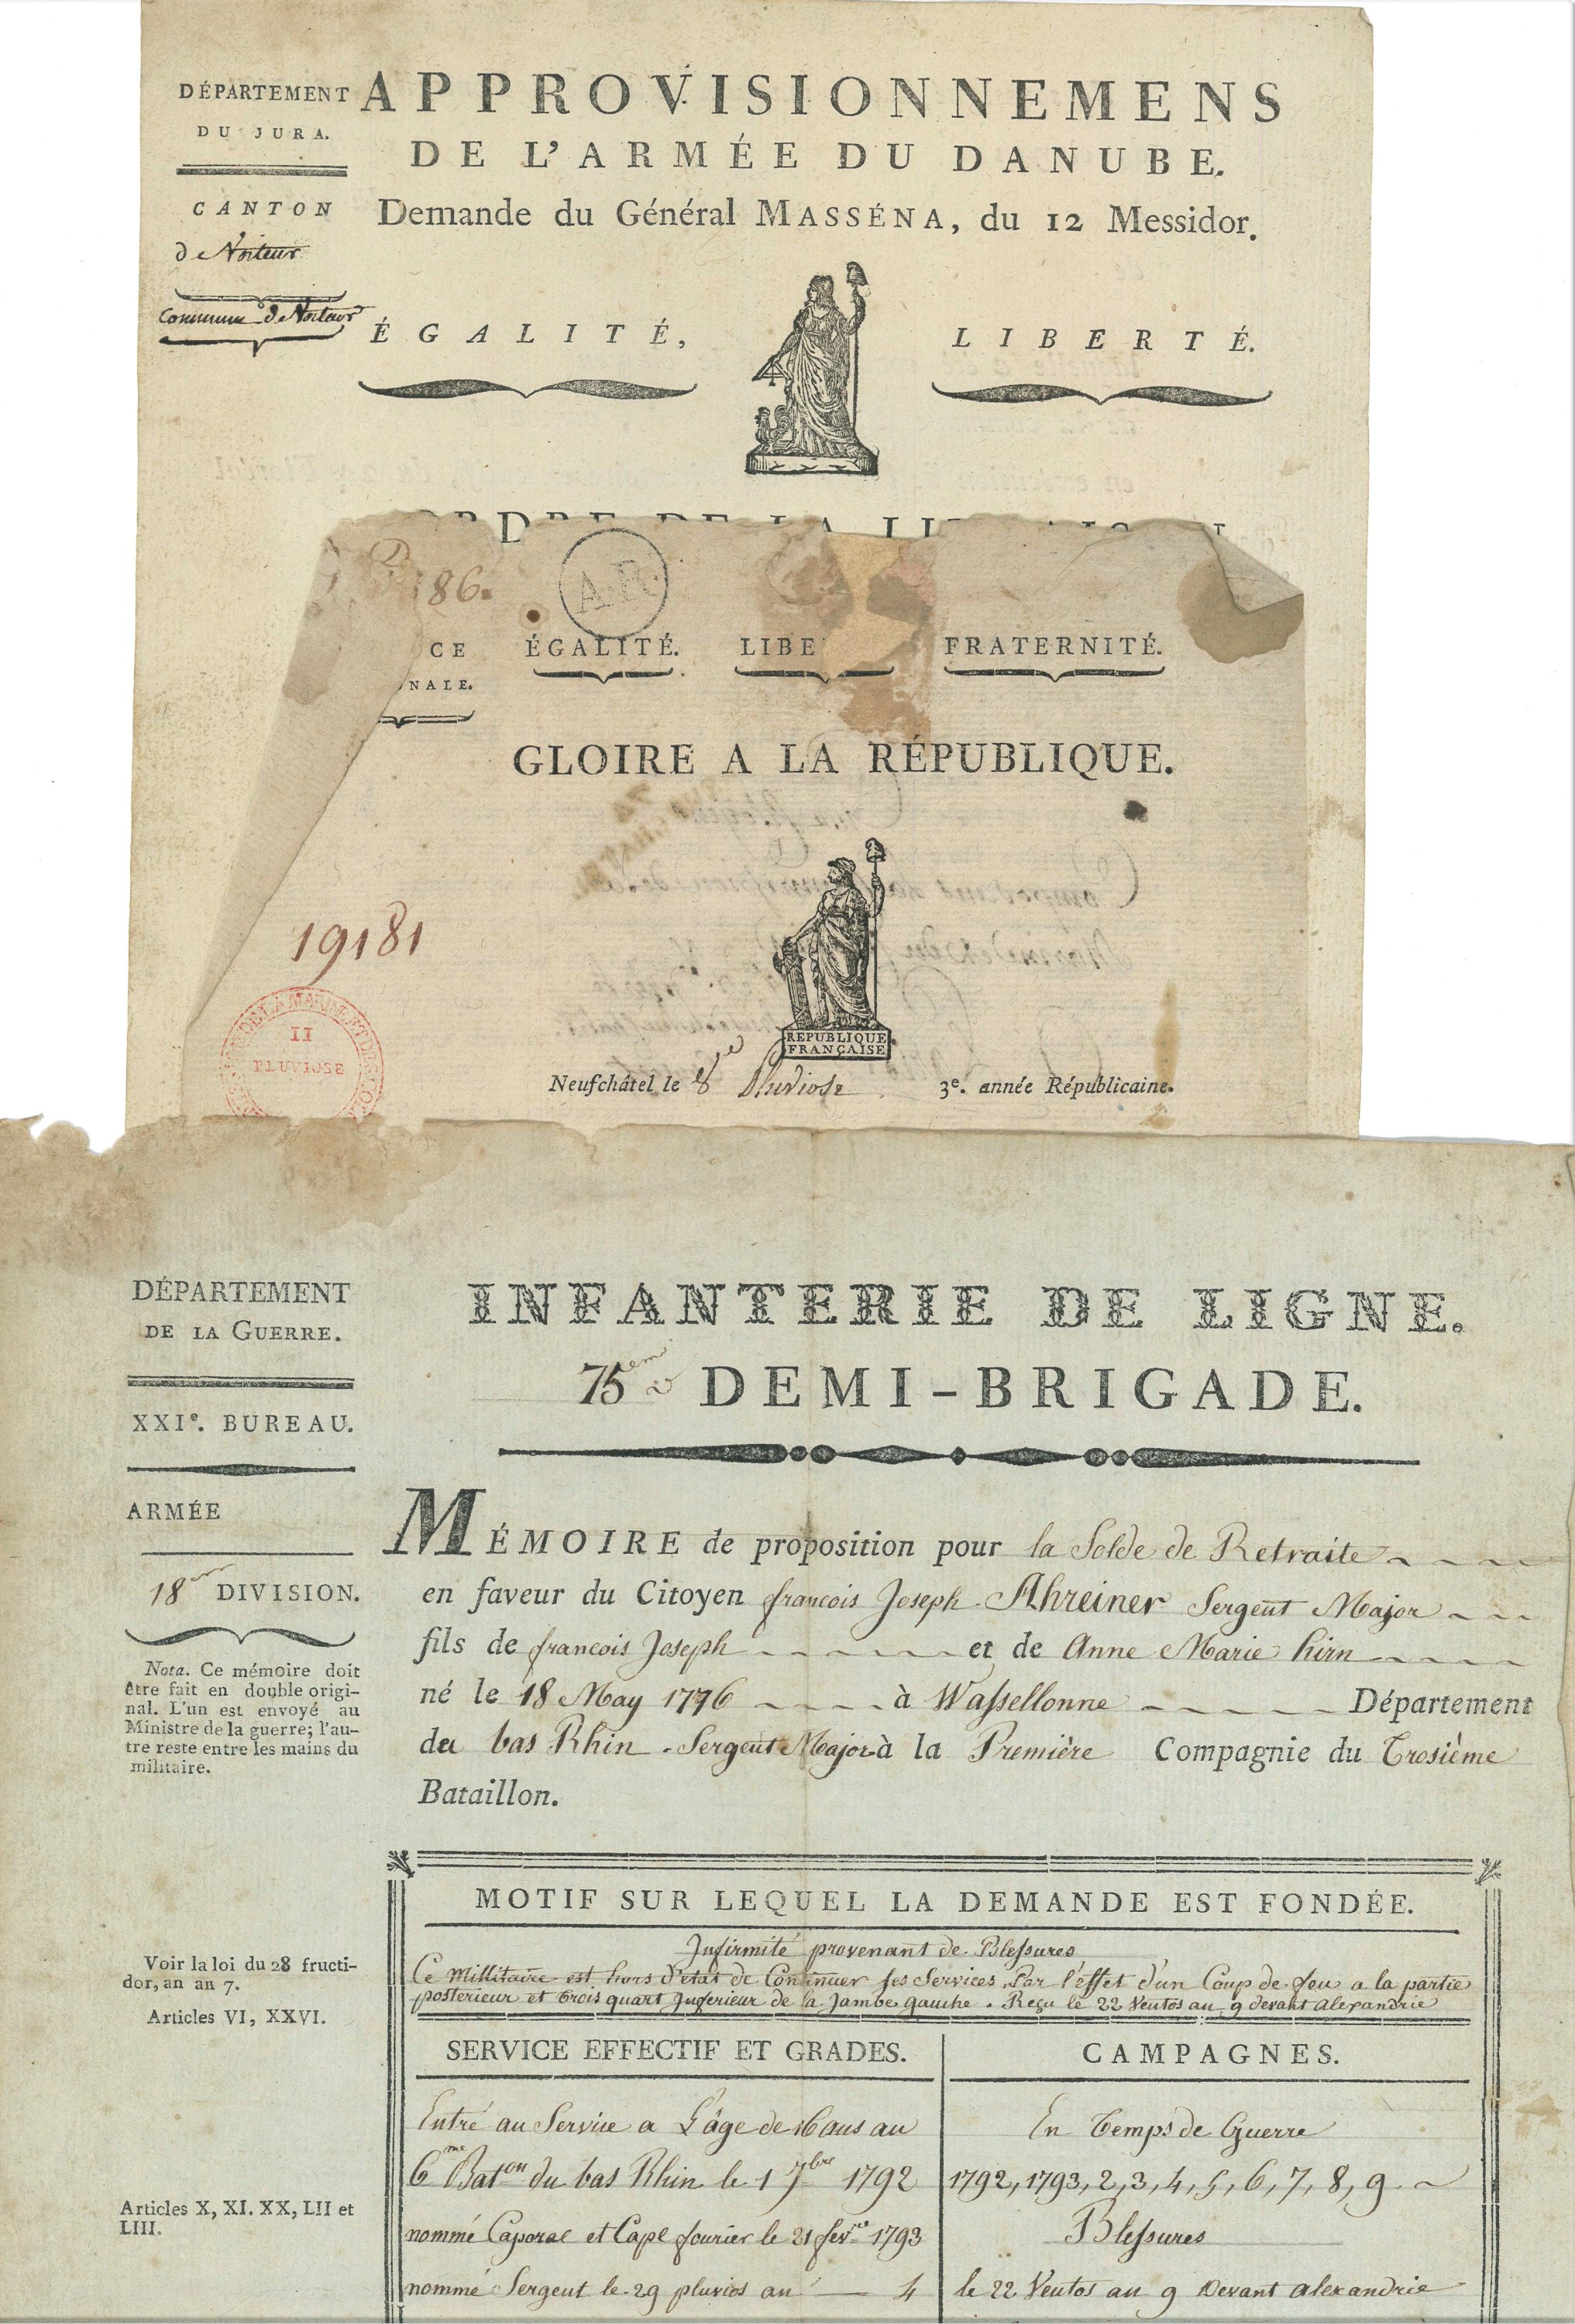 DÉPARTEMENT
DU JURA.
CANTON
de Voiteur
Commune de Voiteur
APPROVISIONNEMENS
DE L'ARMÉE DU DANUBE.
Demande du Général MASSÉNA, du 12 Messidor.
ÉGALITÉ,
LIBERTÉ.
86.
A.R.
CE
NALE.
ÉGALITÉ. LIBE FRATERNITÉ.
GLOIRE A LA RÉPUBLIQUE.
19181
DE LA MARINE ET DES
II
PLUVIOSE
REPUBLIQUE
FRANÇAISE
Neufchâtel le 8e Pluviose 3e. année Républicaine.
DÉPARTEMENT
DE LA GUERRE.
XXIe. BUREAU.
ARMÉE
18em DIVISION.
Nota. Ce mémoire doit
être fait en double origi-
nal. L'un est envoyé au
Ministre de la guerre; l'au-
tre reste entre les mains du
militaire.
INFANTERIE DE LIGNE.
75eme DEMI-BRIGADE.
MÉMOIRE de proposition pour la Solde de Retraite
en faveur du Citoyen francois Joseph Ahreiner Sergent Major
fils de francois Joseph et de Anne Marie hirn
né le 18 May 1776 à Wassellonne Département
du bas Rhin Sergent Major à la Première Compagnie du Trosième
Bataillon.
MOTIF SUR LEQUEL LA DEMANDE EST FONDÉE.
Infirmité provenant de Blessures
Ce Millitaire est hors d'etat de Continuer ses Services, Par l'effet d'un Coup de feu a la partie
posterieur et trois quart Inferieur de la Jambe gauche. Reçu le 22 Ventos an 9 devant alexandrie
Voir la loi du 28 fructi-
dor, an an 7.
Articles VI, XXVI.
SERVICE EFFECTIF ET GRADES.
Entré au Service a L'âge de 16 ans au
6me Baton du bas Rhin le 1 7bre 1792
nommé Caporal et Capl fourier le 21 fevre 1793
nommé Sergent le 29 pluvios an 4
Articles X, XI. XX, LII et
LIII.
CAMPAGNES.
En Temps de Guerre
1792, 1793, 2, 3, 4, 5, 6, 7, 8, 9.
Blessures
le 22 Ventos an 9 Devant alexandrie